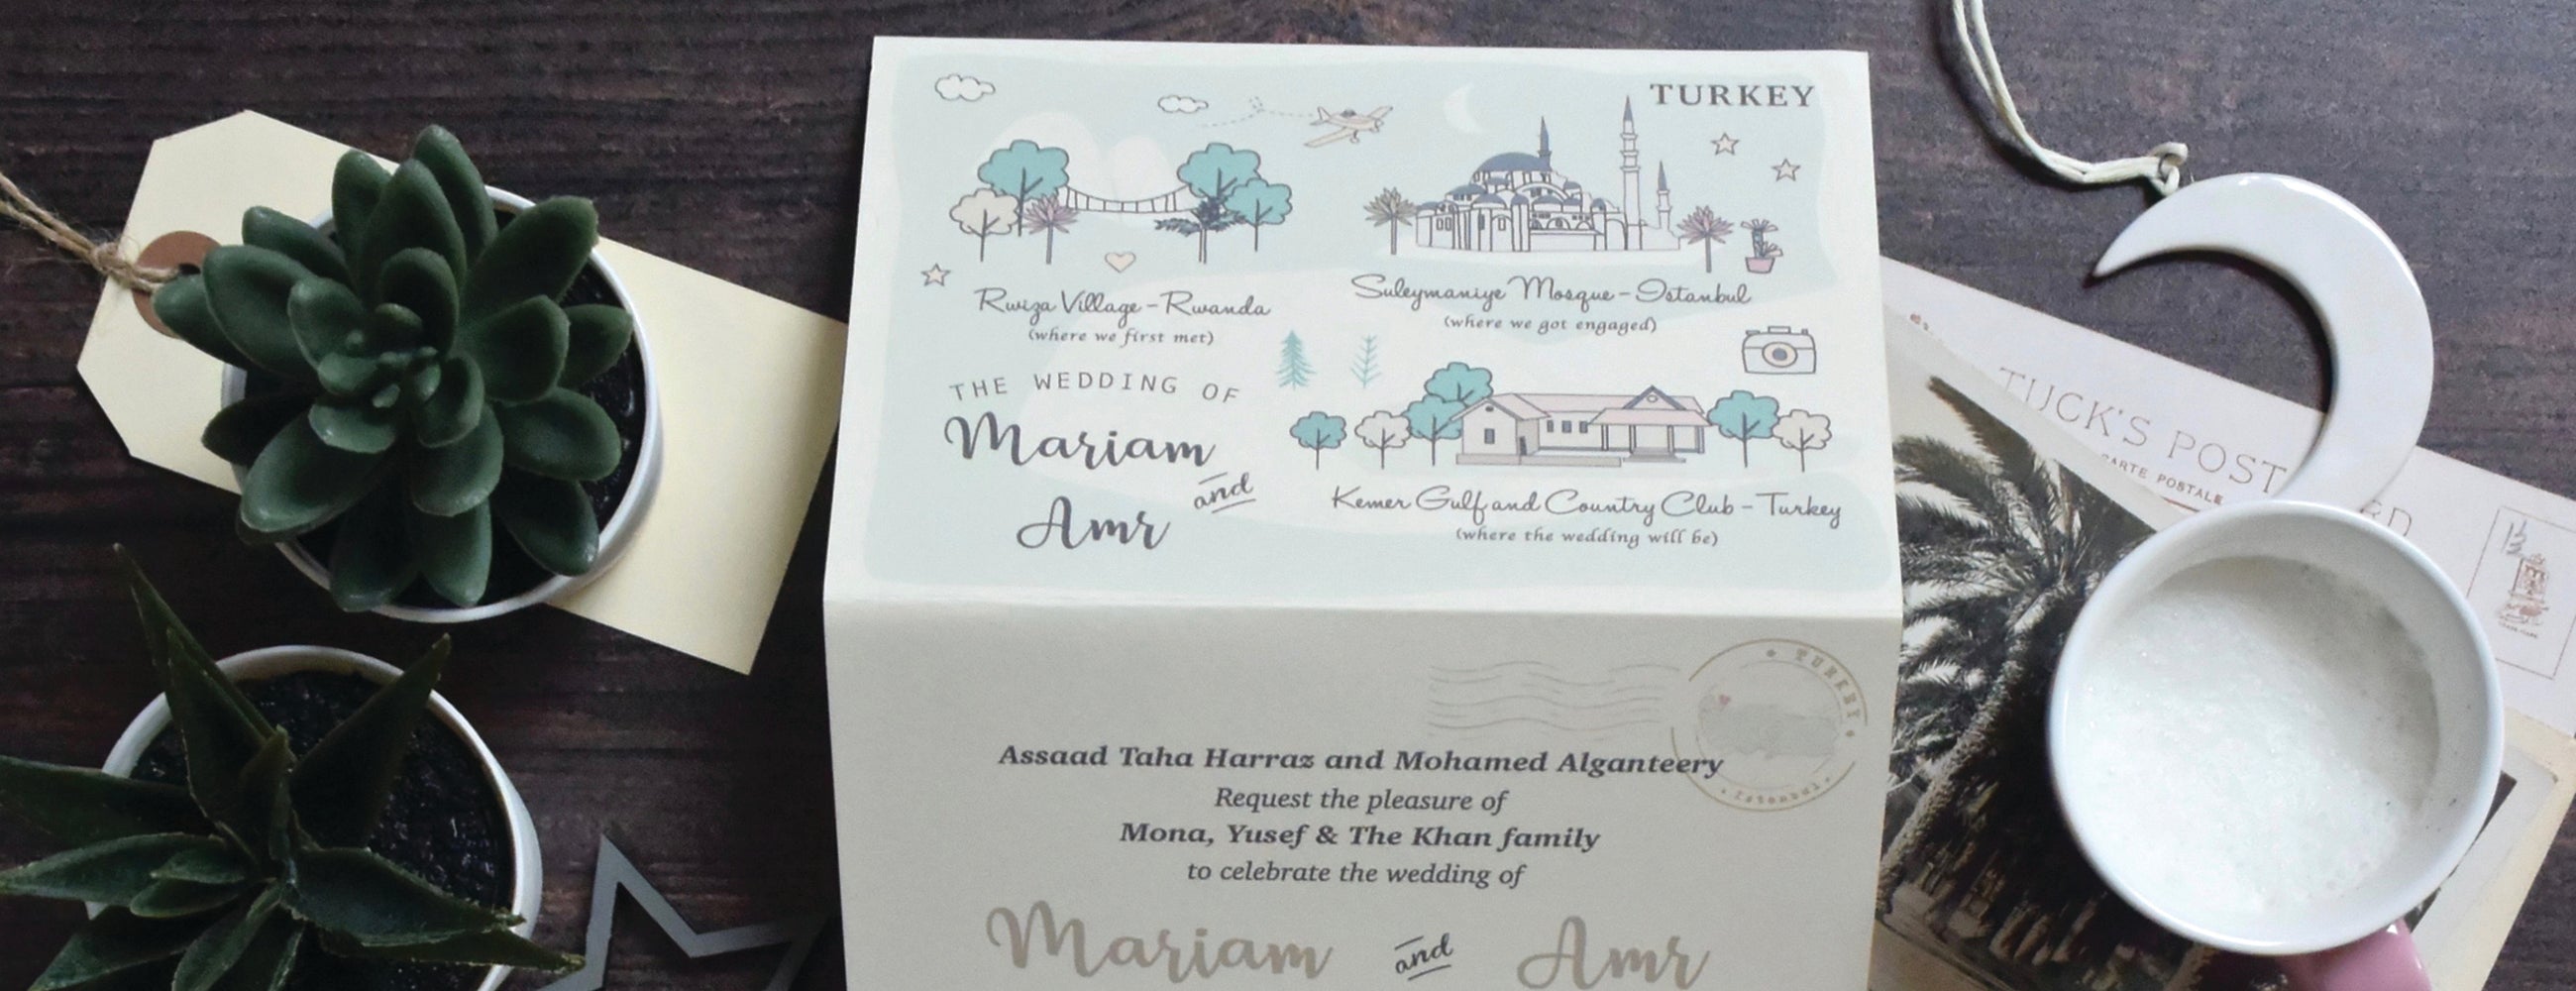 TURKEY
Rwiza Village - Rwanda
(where we first met)
Suleymaniye Mosque - Istanbul
(where we got engaged)
THE WEDDING OF
Mariam
and
Amr
Kemer Gulf and Country Club - Turkey
(where the wedding will be)
TURKEY
Istanbul
Assaad Taha Harraz and Mohamed Alganteery
Request the pleasure of
Mona, Yusef & The Khan family
to celebrate the wedding of
Mariam and Amr
TUCK'S POST
CARTE POSTALE